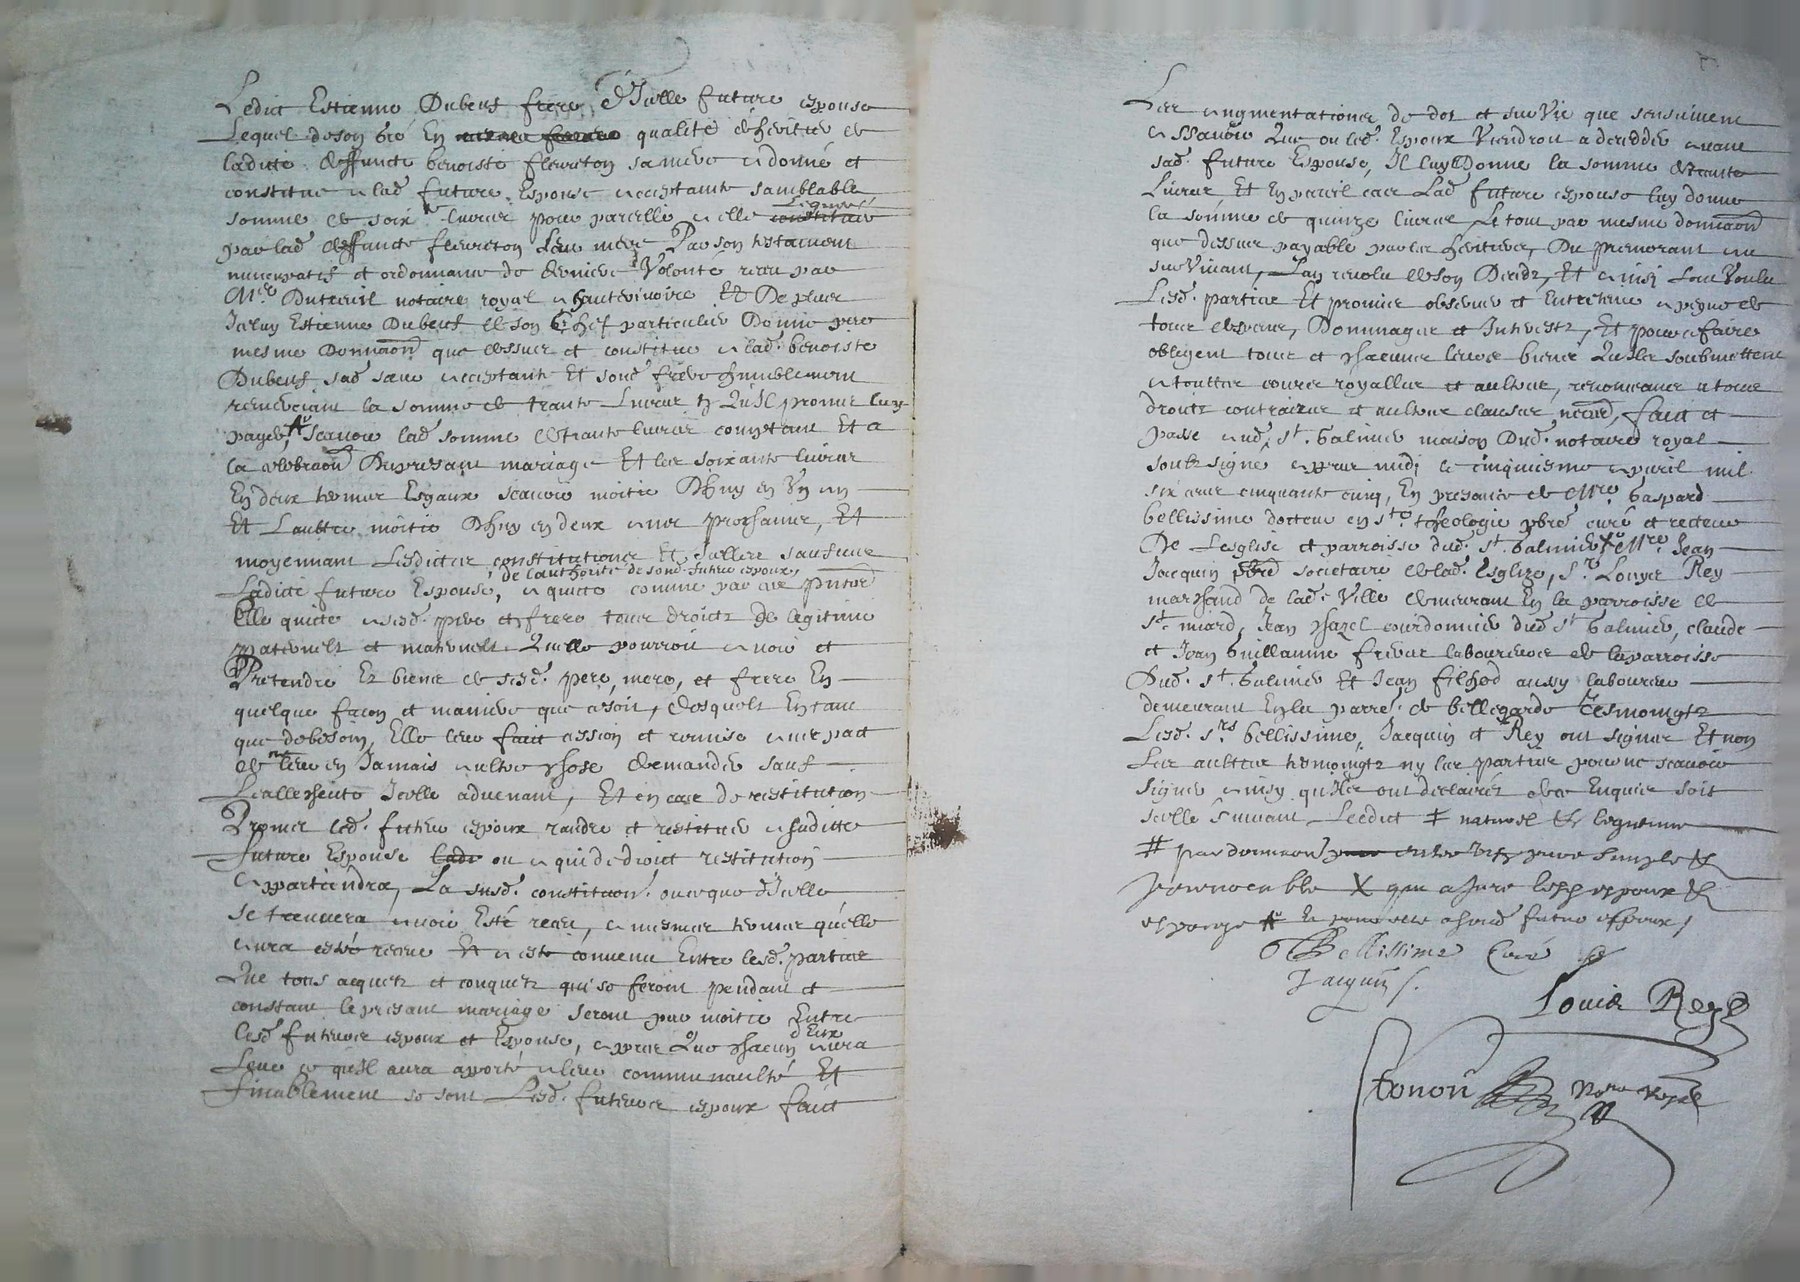 Ledict Estienne Dubeuf frere d'Icelle future espouse
Lequel de son gré En qualité d'heritier de
ladicte deffuncte benoiste fleureton sa mere a donné et
constitue a lad. future Espouse acceptante samblable
somme de soixte livres pour parcelle a elle leguée
par lad. deffuncte fleureton leur mere Par son testament
nuncupatif et ordonnance de derniere Volonté receu par
Mre Duteuil notaire royal a hautevinoire Et De plus
Iceluy Estienne Dubeuf de son chef particulier Donne par
mesme Donnaon que dessus et constitue a lad. benoiste
Dubeuf sad. sœur acceptante Et sond. frere humblement
remerciant la somme de trante Livres tz Qu'Il promet luy
payer, scavoir lad. somme de trante livres comptant Et a
la celebraon Du presant mariage Et les soixante livres
En deux termes Esgaux scavoir moitie D'huy en Un an
Et L'aultre moitie D'huy en deux ans prochains, Et
moyennant Lesdictes constitutions Et Icelles saufues
de l'authorité de sond. futur espoux,
Ladicte future Espouse, a quitté comme par ces pntes
Elle quicte a sesd. pere et frere tous droicts De legitime
paternels et maternels Quelle pourroit avoir et
Pretendre Es biens de sesd. pere, mere, et frere En
quelque facon et maniere que ce soit, desquels En tant
que de besoin, Elle leur faict cession et remise avec pact
de ne leur en Jamais aultre chose demander sauf
Leallescheute Icelle advenant, Et en cas de restitution
Promet led. futur espoux randre et restituer a saditte
future Espouse ou a qui de droict restitution
appartiendra, La susd. constituaon ou ce que d'Icelle
se treuvera avoir Esté receu, a mesmes termes qu'elle
aura esté receue Et a esté convenu Entre lesd. parties
Que tous acquetz et conquetz qui se feront pendant et
constant le presant mariage seront par moitie Entre
lesd. futurs espoux et Espouse, apres Que chacun d'Eux aura
Leve ce qu'Il aura apporté a leur communaulté Et
finablement se sont Lesd. futurs espoux faict
Les augmentations de dot et survie que sensuivent
a scavoir Que ou led. Espoux Viendroit a decedder avant
sad. future Espouse, Il luy Donne la somme de trante
Livres Et En pareil cas Lad. future espouse luy donne
la somme de quinze livres Le tout par mesme donnaon
que dessus payable par les heritiers, Du premorant au
survivant, L'an revolu de son Decedz, Et ainsi l'ont Voulu
Lesd. parties Et promis observer et Entretenir a peyne de
tous despens, Dommages et Interestz, Et pour ce faire
obligent tous et chacuns leurs biens Quilz soubmettent
a touttes cources royalles et aultres, renonceans a tous
droictz contraires et aultres clauses necres, faict et
passe aud. St. Galmier maison Dud. notaire royal
soubzsigné apres midi le cinquiesme apvril mil
six cens cinquante cinq, En presance de Mre Gaspard
bellissime docteur en Ste. theologie pbre curé et recteur
De L'esglise et parroisse dud. St. Galmier Mre Jean
Jacquin pbre societaire de lad. Esglize, Sr. Louys Rey
marchand de lad. Ville demeurant En la parroisse de
St. miard, Jean chazel courdonnier dud. St Galmier, claude
et Jean Guillaume freres laboureurs de la parroisse
Dud. St. Galmier Et Jean filhod aussy laboureur
demeurant En la parre. de bellegarde tesmoingtz
Lesd. Srs bellissime, Jacquin et Rey ont signes Et non
Les aultres tesmoingtz ny les parties pour ne scavoir
signer ainsy qu'Ilz ont declairez de ce Enquis soit
scelle suivant Leedict ‡ naturel & legitime
# par donnaon entre vifz pure simple &
Irrevocable X
espouze # futur espoux /
Bellissime Curé
Jacquin
Louis Rey
Tonon Nore royal